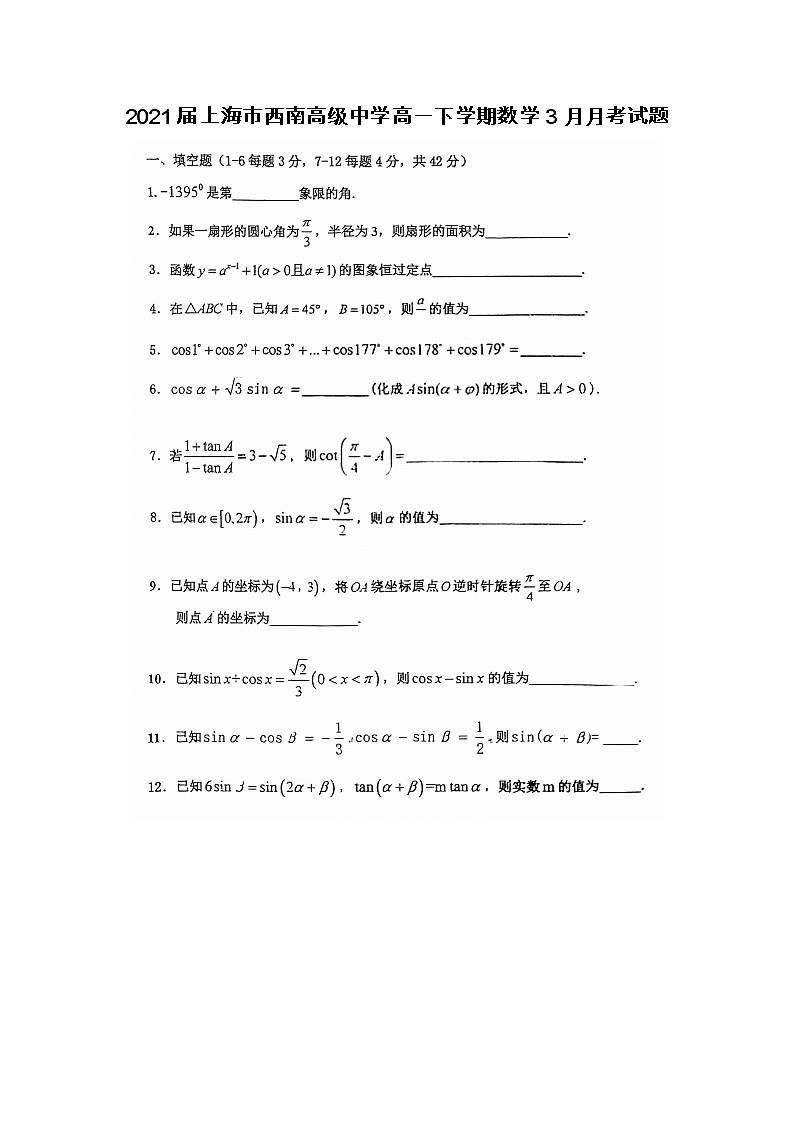 2021届上海市西南高级中学高一下学期数学3月月考试题
一、填空题（1-6每题3分，7-12每题4分，共42分）
1. -1395⁰是第__________象限的角.
2. 如果一扇形的圆心角为π/3，半径为3，则扇形的面积为____________.
3. 函数y=aˣ⁻¹+1(a>0且a≠1)的图象恒过定点______________________.
4. 在△ABC中，已知A=45°，B=105°，则a/ 的值为_________________.
5. cos1°+cos2°+cos3°+...+cos177°+cos178°+cos179°=_________.
6. cosα+√3sinα=__________(化成Asin(α+φ)的形式，且A>0).
7. 若(1+tanA)/(1-tanA)=3-√5，则cot(π/4-A)=__________________________.
8. 已知α∈[0,2π)，sinα=-√3/2，则α的值为_____________________.
9. 已知点A的坐标为(-4，3)，将OA绕坐标原点O逆时针旋转π/4至OA，
则点A'的坐标为_____________.
10. 已知sinx+cosx=√2/3(0<x<π)，则cosx-sinx的值为_______________.
11. 已知sinα-cosβ=-1/3,cosα-sinβ=1/2,则sin(α+β)=_____.
12. 已知6sinβ=sin(2α+β)，tan(α+β)=mtanα，则实数m的值为______.